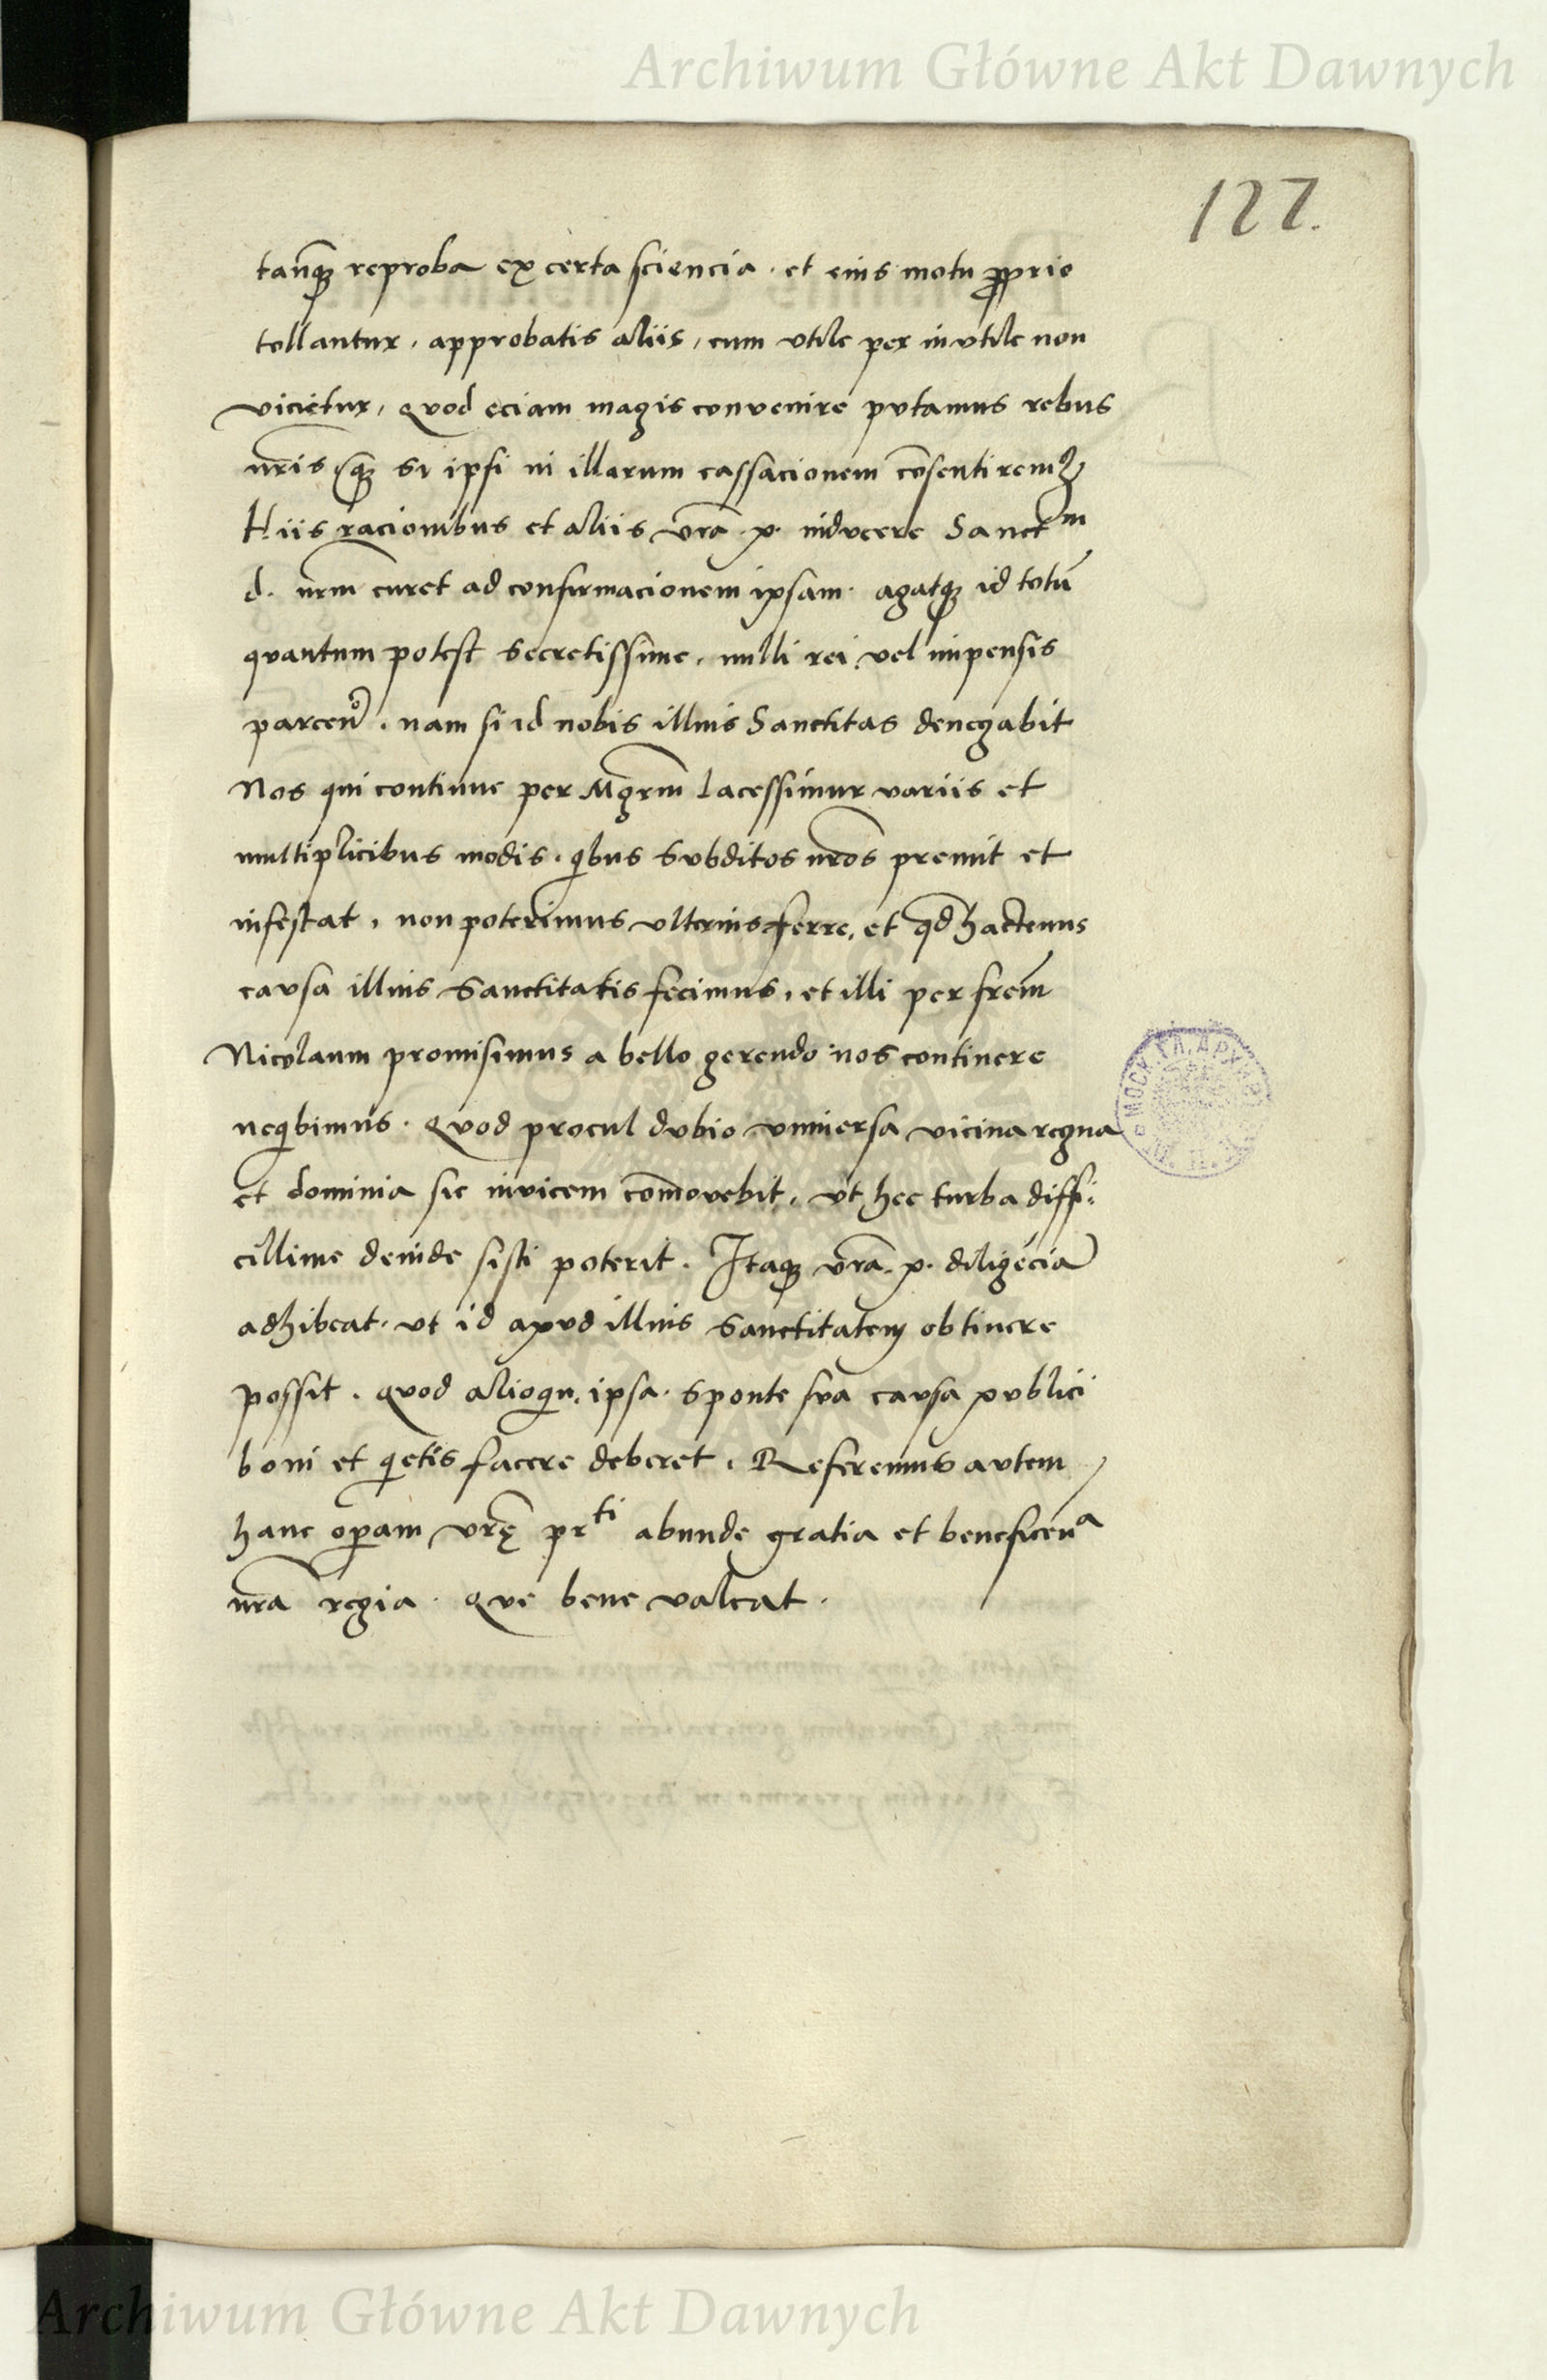 Archiwum Główne Akt Dawnych
127.
tanq̃ꝫ reproba ex certa sciencia. et eius motu ꝓprio
tollantur, approbatis aliis, cum vtile per invtile non
vicietur, qvod eciam magis convenire pvtamus rebus
nr̃is (qꝫ si ipsi in illarum cassacionem cõsentiremꝫ
Hiis racionibus et aliis vr̃a. p. indvcere Sanctᵐ
d. nr̃m curet ad confirmacionem ipsam. agatqꝫ id totũ
qvantum potest secretissime, nulli rei vel impensis
parcen̾. nam si id nobis illius Sanctitas denegabit
Nos qui continue per Mgr̃m lacessimur variis et
multiplicibus modis. qibus svbditos nr̃os premit et
infestat, non poterimus vlterius ferre, et qd̃ hactenus
cavsa illius Sanctitatis fecimus, et illi per fr̃em
Nicolaum promisimus a bello gerendo nos continere
neqibimus. Qvod procul dvbio vniversa vicina regna
et dominia sic invicem cõmovebit, vt hec turba diffi:
cillime deinde sisti poterit. Itaqꝫ vr̃a. p. diligẽciã
adhibeat. vt id apvd illius Sanctitatem obtinere
possit. qvod alioqin, ipsa. sponte sva cavsa pvblici
boni et qietis facere deberet. Referemus avtem
hanc op̃am vr̃ę prᵗⁱ abunde gratia et beneficenᵃ
nr̃a regia. Qve bene valeat.
Archiwum Główne Akt Dawnych